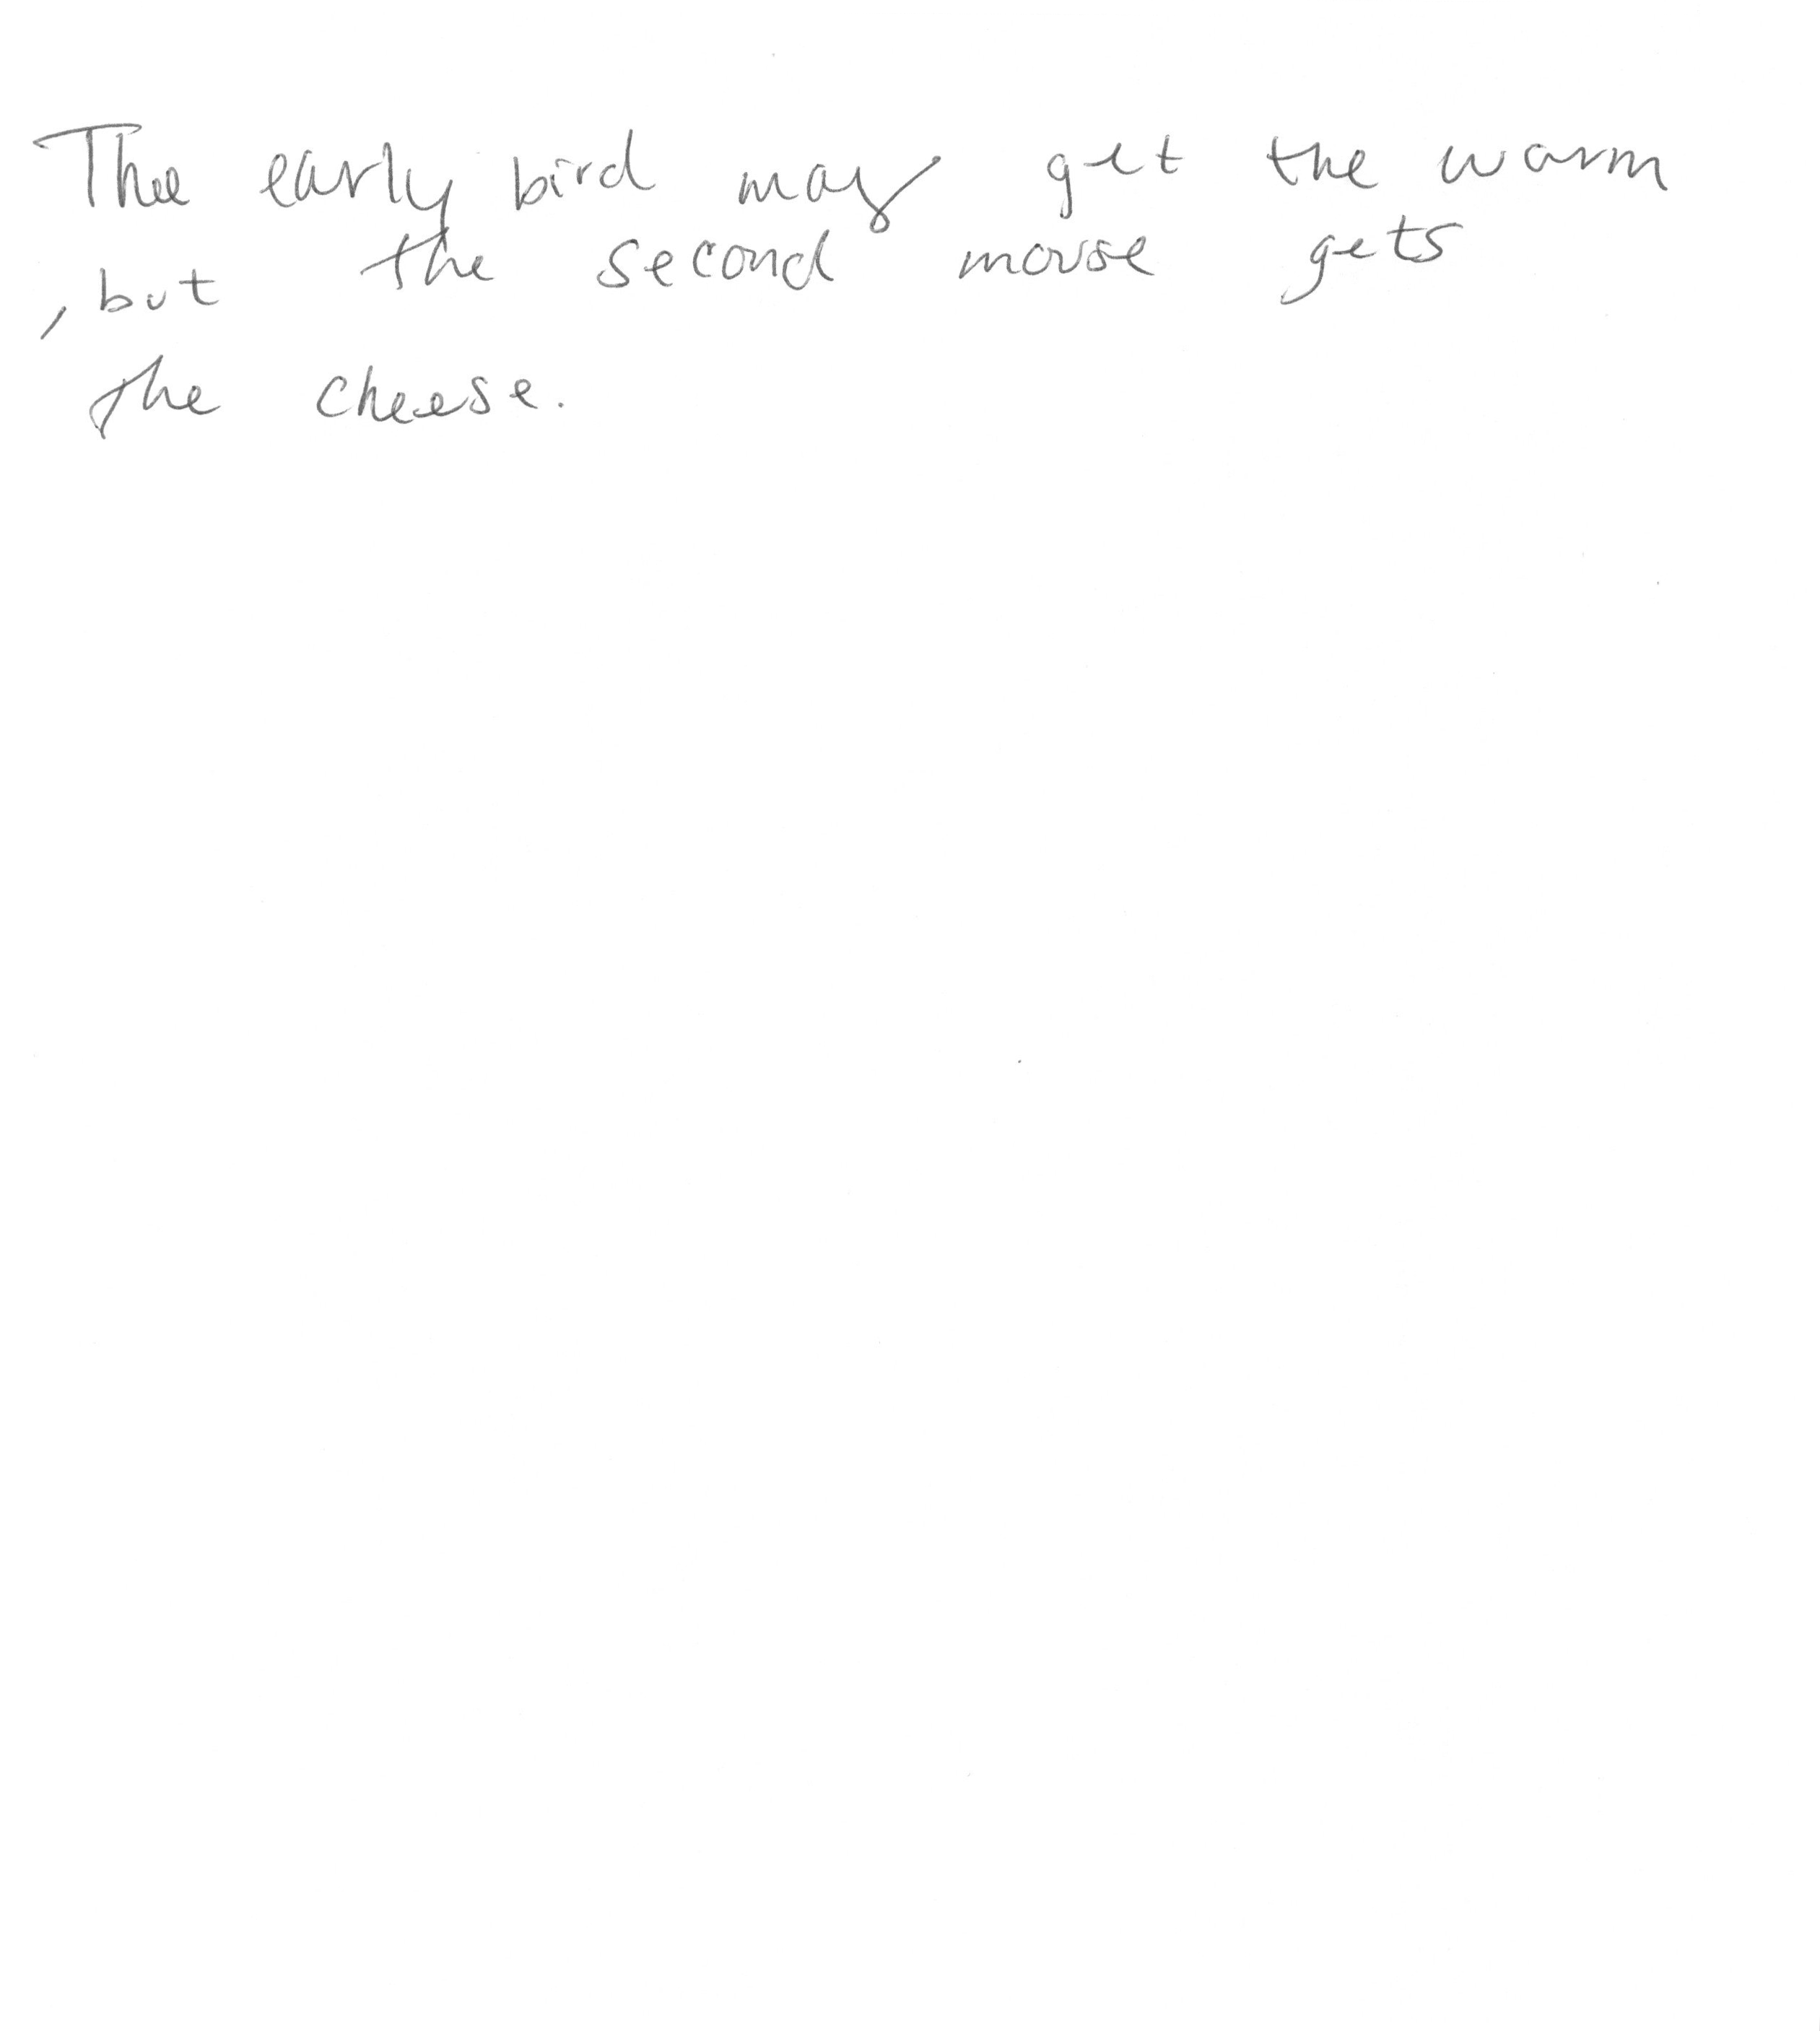 Thee early bird may get the warm
, but the second mouse gets
the cheese.